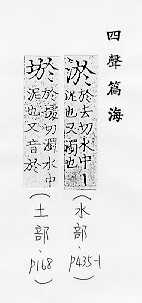 四聲篇海
淤於去切水中丨
泥也又濁也
(水部、p435-1
㘄於據切濁水中
泥也又音於
(土部、p168)